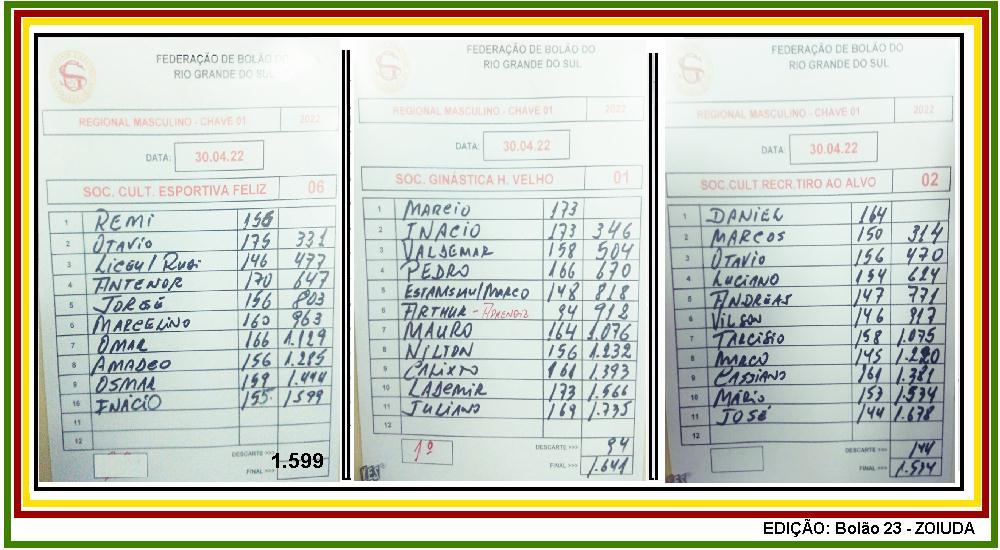 FEDERAÇÃO DE BOLÃO DO
RIO GRANDE DO SUL
REGIONAL MASCULINO - CHAVE 01 2022
DATA: 30.04.22
SOC. CULT. ESPORTIVA FELIZ 06
1 REMI 156
2 OTAVIO 175 331
3 LICEU/RUDI 146 477
4 ANTENOR 170 647
5 JORGE 156 803
6 MARCELINO 160 963
7 OMAR 166 1.129
8 AMADEO 156 1.285
9 OSMAR 159 1.444
10 INÁCIO 155 1.599
11
12
DESCARTE >>>
FINAL >>> 1.599
FEDERAÇÃO DE BOLÃO DO
RIO GRANDE DO SUL
REGIONAL MASCULINO - CHAVE 01 2022
DATA: 30.04.22
SOC. GINÁSTICA H. VELHO 01
1 MARCIO 173
2 INACIO 173 346
3 VALDEMAR 158 504
4 PEDRO 166 670
5 ESTANISLAU/MARCO 148 818
6 ARTHUR - APRENDIZ 94 912
7 MAURO 164 1.076
8 NILTON 156 1.232
9 CALIXTO 161 1.393
10 LADEMIR 173 1.566
11 JULIANO 169 1.735
12
1º DESCARTE >>> 94
FINAL >>> 1.641
YES
FEDERAÇÃO DE BOLÃO DO
RIO GRANDE DO SUL
REGIONAL MASCULINO - CHAVE 01 2022
DATA: 30.04.22
SOC.CULT RECR.TIRO AO ALVO 02
1 DANIEL 164
2 MARCOS 150 314
3 OTAVIO 156 470
4 LUCIANO 154 624
5 ANDREAS 147 771
6 VILSON 146 917
7 TARCISIO 158 1.075
8 MARCO 145 1.220
9 CASSIANO 161 1.381
10 MÁRIO 153 1.534
11 JOSÉ 144 1.678
12
DESCARTE >>> 144
FINAL >>> 1.534
YES
EDIÇÃO: Bolão 23 - ZOIUDA